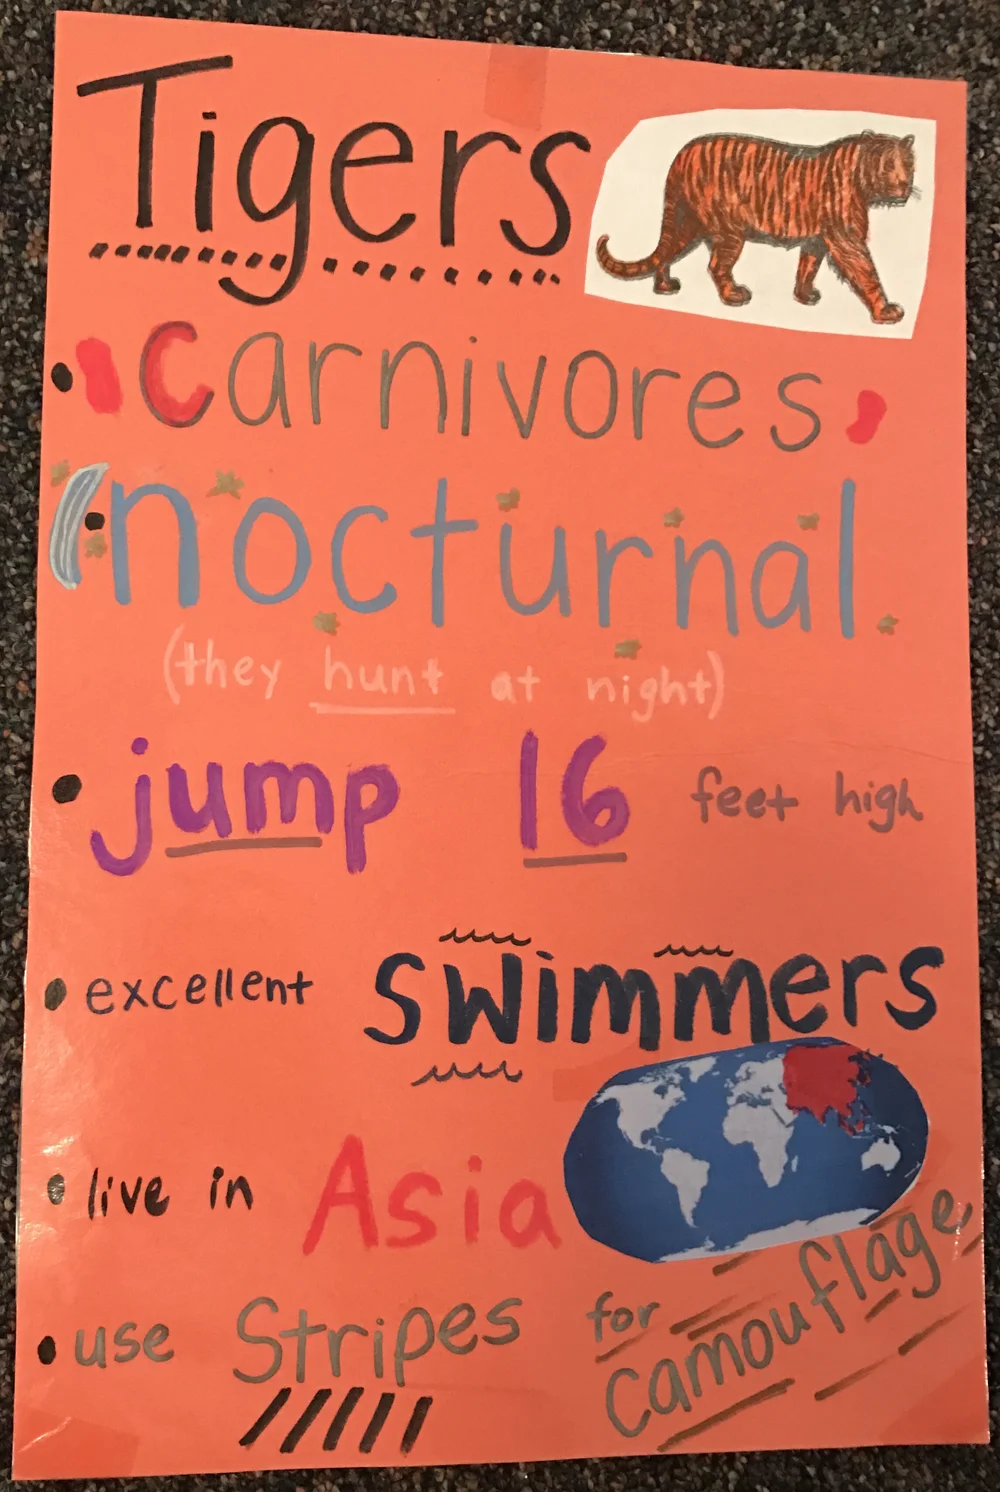 Tigers
• Carnivores
• nocturnal
(they hunt at night)
• jump 16 feet high
• excellent swimmers
• live in Asia
• use Stripes for camouflage